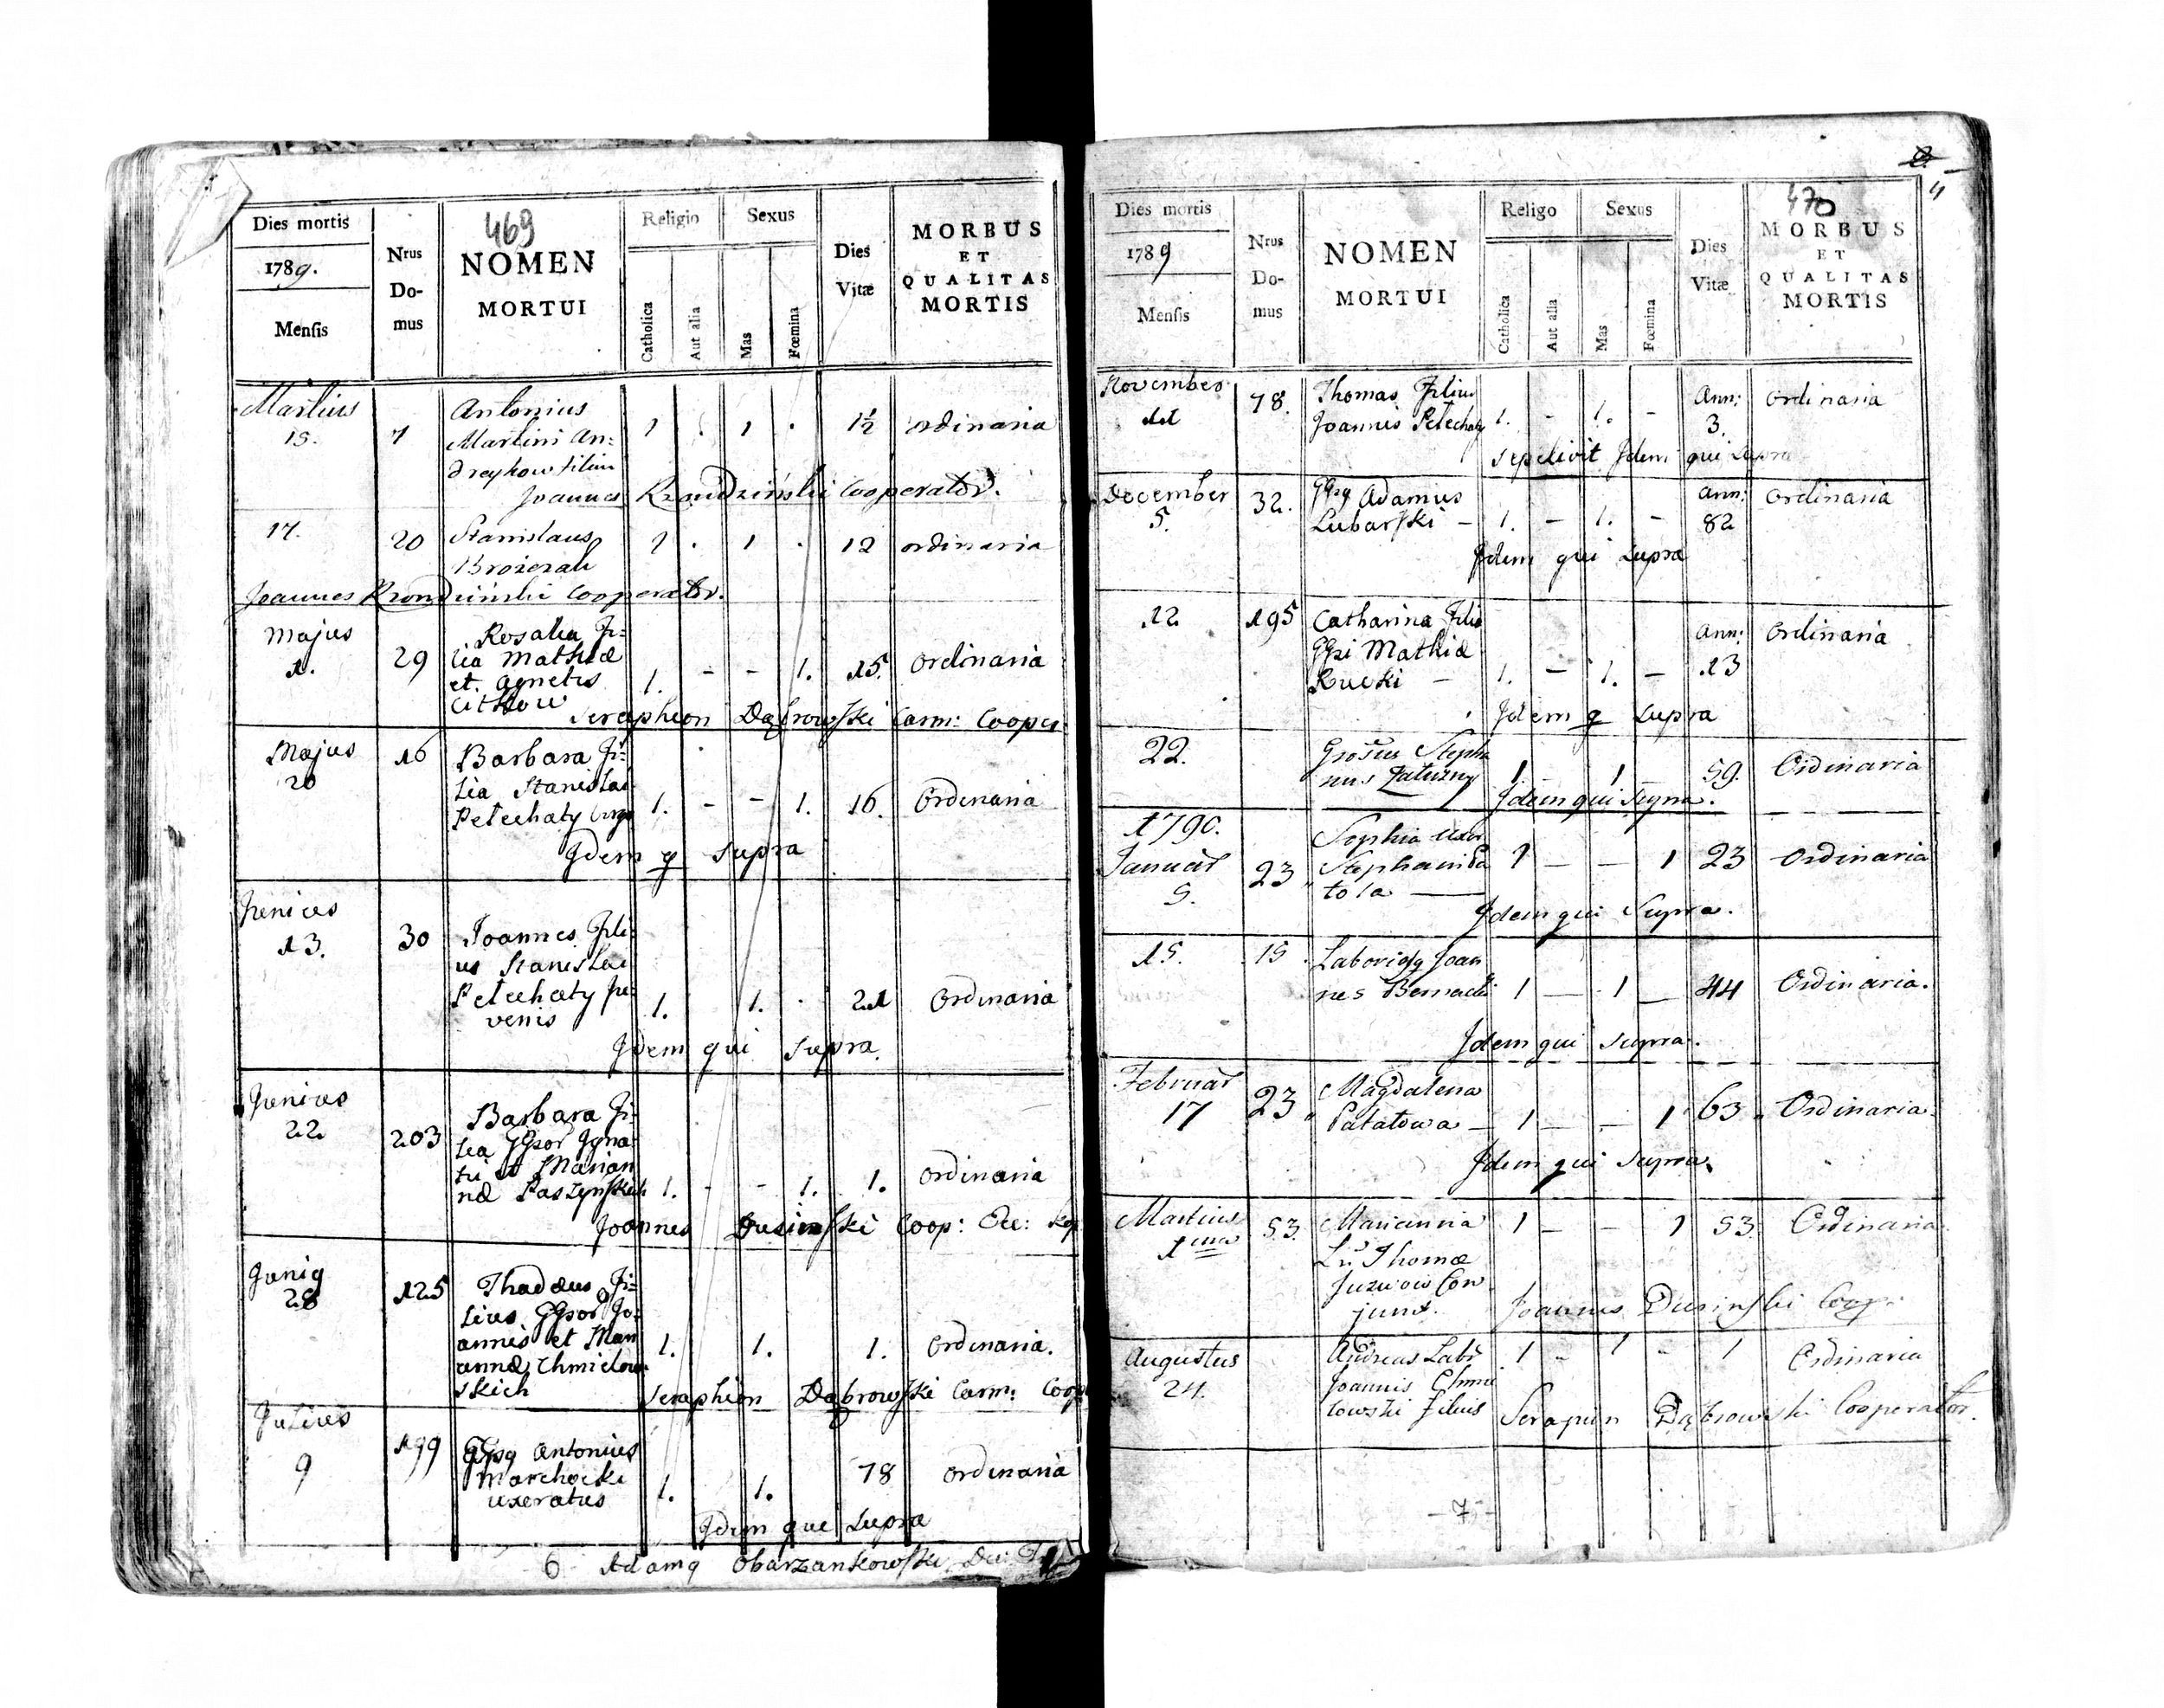 469
Dies mortis
1789.
Mensis
Nrus
Do-
mus
NOMEN
MORTUI
Religio
Catholica
Aut alia
Sexus
Mas
Fœmina
Dies
Vitæ
MORBUS
ET
QUALITAS
MORTIS
Martius
15.
7
Antonius
Martini An:
dreykow filius
1 . 1 . 1½ ordinaria
Joannes Krzendzinski Cooperator.
17.
20
Stanislaus
1 . 1 . 12 ordinaria
Joannes Cooperator.
Majus
1.
29
Rosalia Fi=
lia Mathiæ
et Agnetis
1. - - 1. 15. Ordinaria
Seraphion Dąbrowski Carm: Cooper
Majus
20
16
Barbara Fi=
lia Stanislai
Pelechaty
1. - - 1. 16. Ordinaria
Idem q Supra
Junius
13.
30
Joannes Fili
us Stanislai
Pelechaty Ju
venis
1. 1. . 21 Ordinaria
Idem qui Supra.
Junius
22
203
Barbara Fi=
lia GGsor Igna
tii et Marian
næ Paszynskich
1. - - 1. 1. Ordinaria
Joannes Dusinski Coop:
Junig
28
125
Thadæus Fi=
lius GGsor Jo=
annis et Mari
annæ Chmielow
skich
1. 1. 1. Ordinaria.
Seraphion Dąbrowski Carm: Coop
Julius
9
199
GGsg Antonius
Marchocki
uxoratus
1. 1. 78 Ordinaria
Idem que Supra
6 Adamg Obarzankowski
4
470
Dies mortis
1789
Mensis
Nrus
Do-
mus
NOMEN
MORTUI
Religo
Catholica
Aut alia
Sexus
Mas
Fœmina
Dies
Vitæ
MORBUS
ET
QUALITAS
MORTIS
November
11
78.
Thomas Filius
Joannis Pelechaty
1. - 1. - Ann: 3. Ordinaria
Sepelivit Idem qui Supra
December
5.
32.
GGsg Adamus
Lubarski -
1. - 1. - Ann: 82 Ordinaria
Idem qui Supra
12
195
Catharina Filia
GGsi Mathiæ
Rucki -
1. - 1. - Ann: 13 Ordinaria
Idem q Supra
22.
Grosus Stepha
nus
1. - 1 - 59. Ordinaria
Idem qui Supra.
1790.
Januar
5.
23
Sophia Uxor
Stephani Pa
tola
1 - - 1 23 Ordinaria
Idem qui Supra.
15.
15
Laboriosg Joan
nes Bernacki
1 - 1 - 44 Ordinaria.
Idem qui Supra.
Februar
17
23
Magdalena
Patatowa -
1 - - 1 63 Ordinaria.
Idem qui Supra.
Martius
1ma
53.
Marianna
Thomæ
Juzwow Con
junx.
1 - - 1 53. Ordinaria
Joannes Dusinski Coop:
Augustus
24.
Andreas Labr
Joannis Chmie
lowski Filius
1 - 1 - 1 Ordinaria
Serapion Dąbrowski Cooperator.
- 7 -